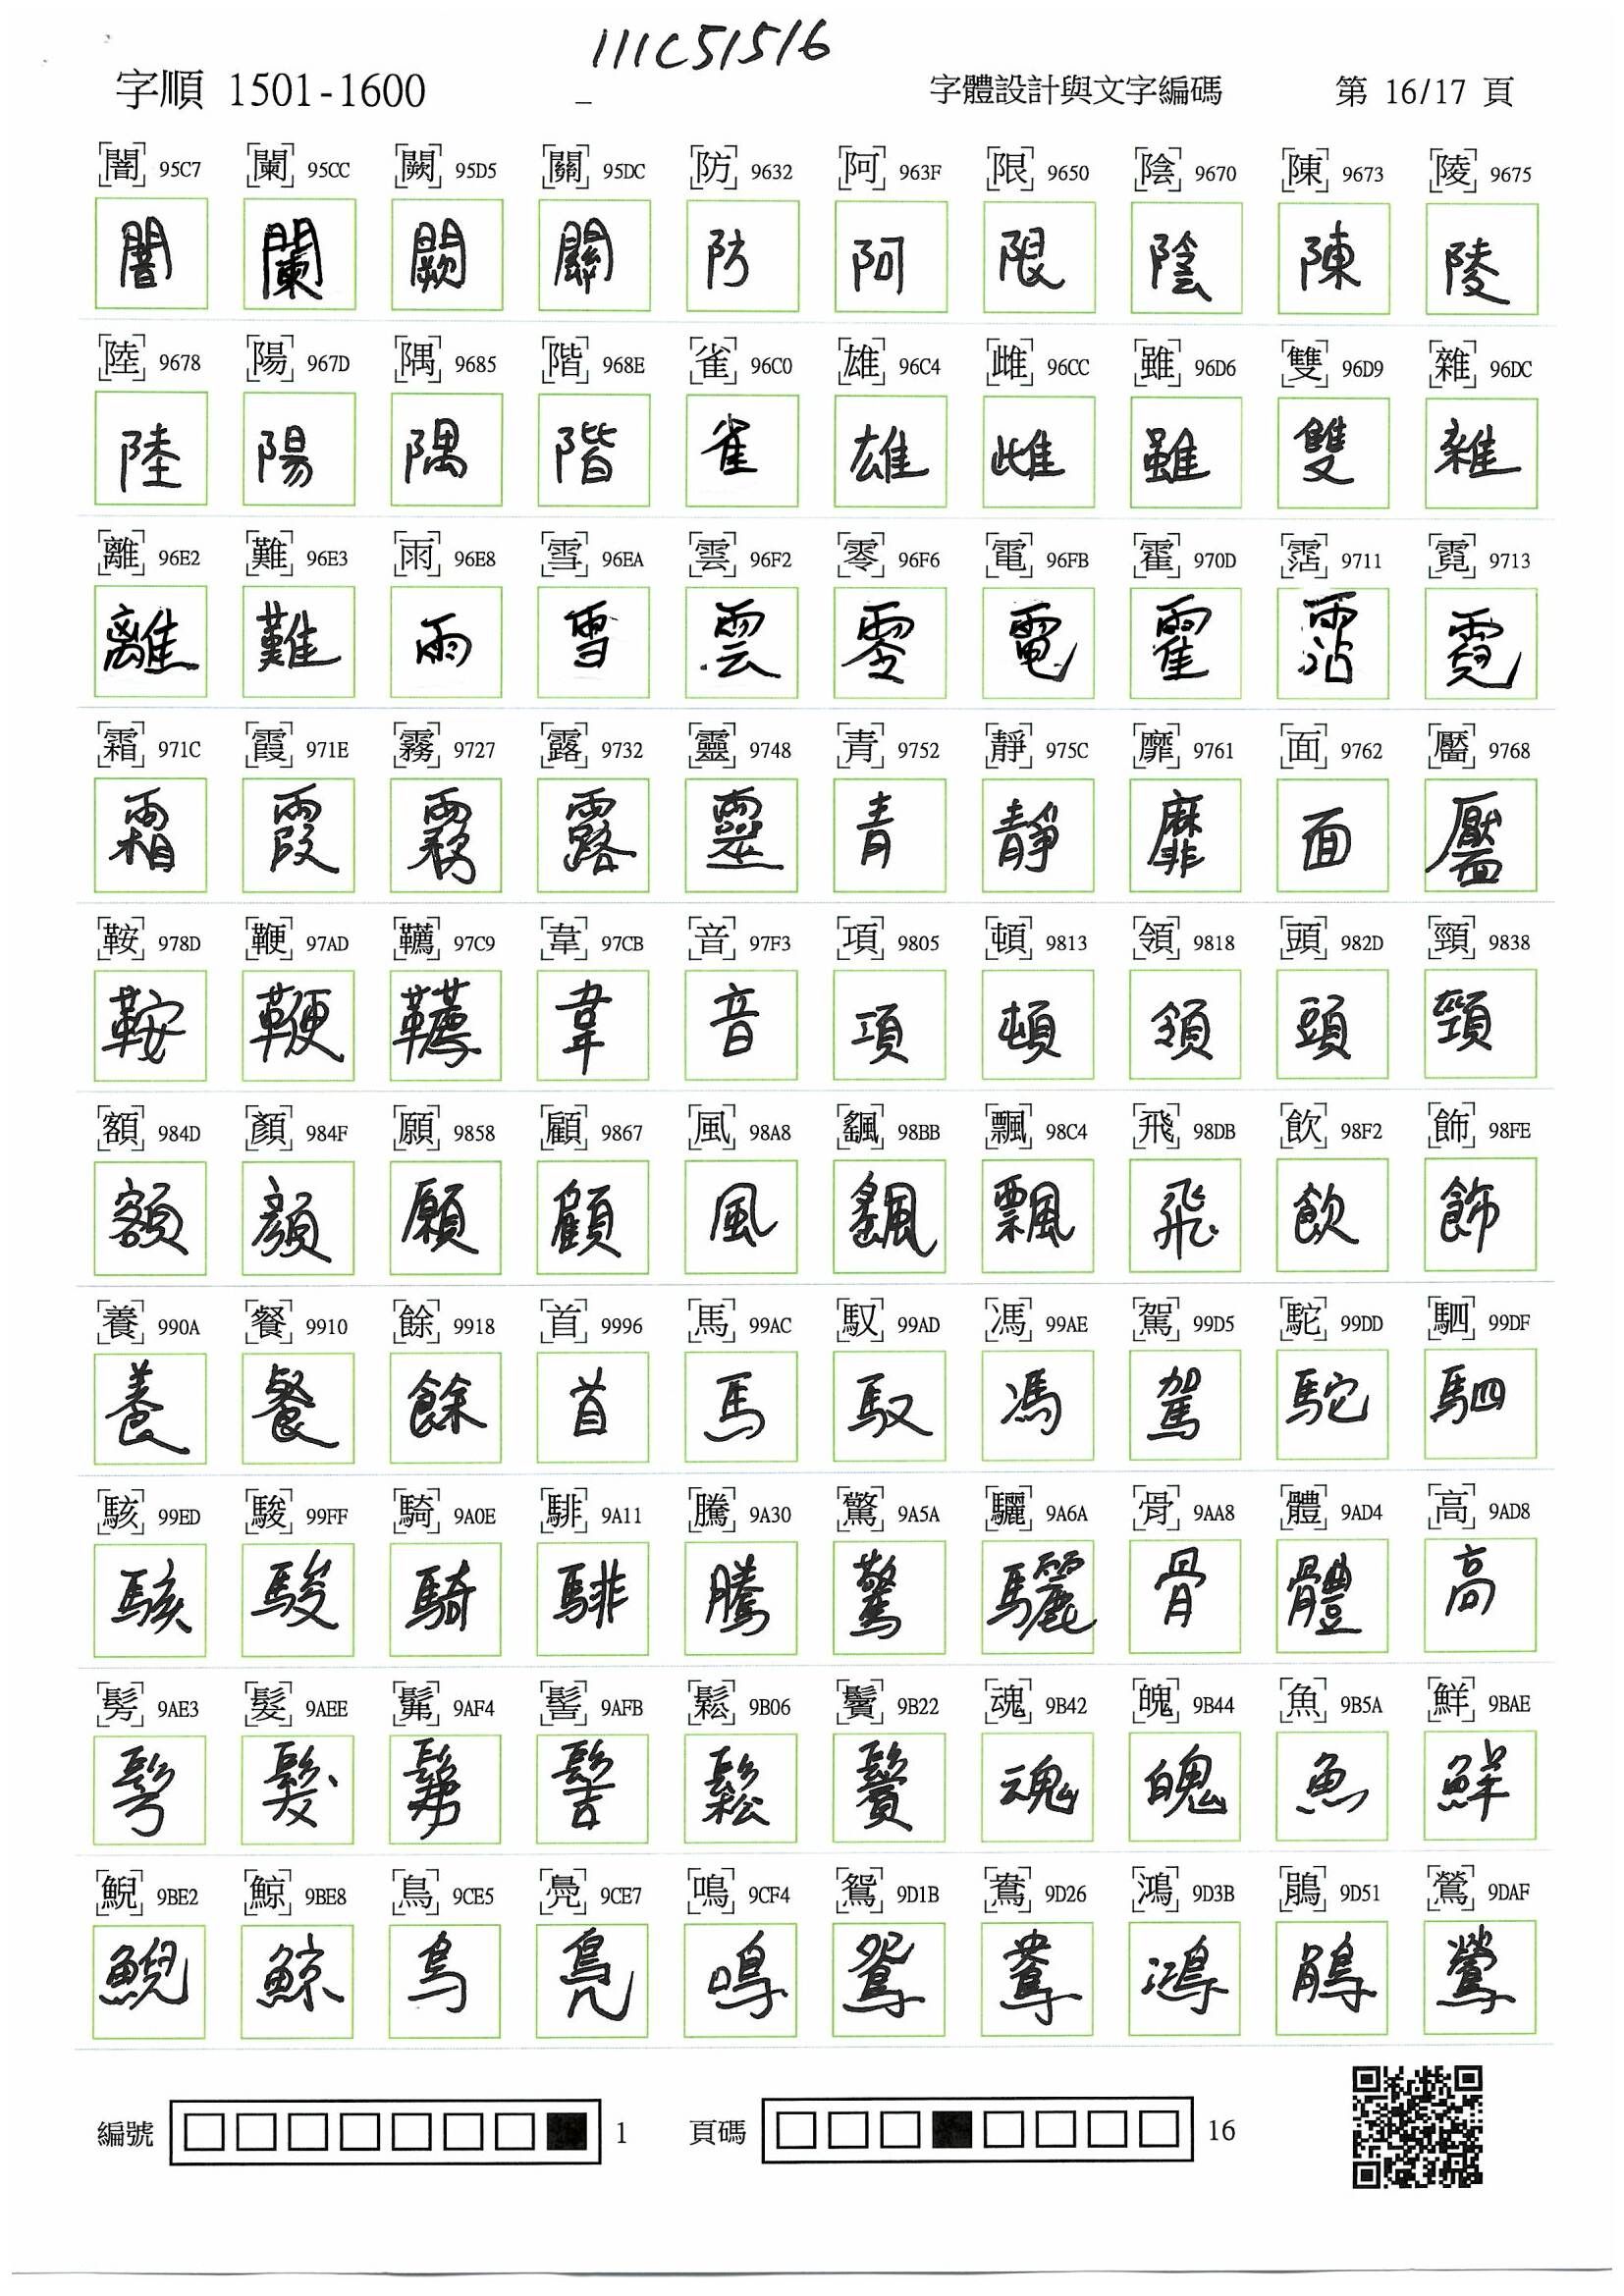 111C51516
字順 1501-1600 _ 字體設計與文字編碼 第 16/17 頁
闇 95C7 闌 95CC 闕 95D5 關 95DC 防 9632 阿 963F 限 9650 陰 9670 陳 9673 陵 9675
闇 闌 闕 關 防 阿 限 陰 陳 陵
陸 9678 陽 967D 隅 9685 階 968E 雀 96C0 雄 96C4 雌 96CC 雖 96D6 雙 96D9 雜 96DC
陸 陽 隅 階 雀 雄 雌 雖 雙 雜
離 96E2 難 96E3 雨 96E8 雪 96EA 雲 96F2 零 96F6 電 96FB 霍 970D 霑 9711 霓 9713
離 難 雨 雪 雲 零 電 霍 霑 霓
霜 971C 霞 971E 霧 9727 露 9732 靈 9748 青 9752 靜 975C 靡 9761 面 9762 靨 9768
霜 霞 霧 露 靈 青 靜 靡 面 靨
鞍 978D 鞭 97AD 韉 97C9 韋 97CB 音 97F3 項 9805 頓 9813 領 9818 頭 982D 頸 9838
鞍 鞭 韉 韋 音 項 頓 領 頭 頸
額 984D 顏 984F 願 9858 顧 9867 風 98A8 颻 98BB 飄 98C4 飛 98DB 飲 98F2 飾 98FE
額 顏 願 顧 風 颻 飄 飛 飲 飾
養 990A 餐 9910 餘 9918 首 9996 馬 99AC 馭 99AD 馮 99AE 駕 99D5 駝 99DD 駟 99DF
養 餐 餘 首 馬 馭 馮 駕 駝 駟
駭 99ED 駿 99FF 騎 9A0E 騑 9A11 騰 9A30 驚 9A5A 驪 9A6A 骨 9AA8 體 9AD4 高 9AD8
駭 駿 騎 騑 騰 驚 驪 骨 體 高
髣 9AE3 髮 9AEE 髴 9AF4 髻 9AFB 鬆 9B06 鬢 9B22 魂 9B42 魄 9B44 魚 9B5A 鮮 9BAE
髣 髮 髴 髻 鬆 鬢 魂 魄 魚 鮮
鯢 9BE2 鯨 9BE8 鳥 9CE5 鳧 9CE7 鳴 9CF4 鴛 9D1B 鴦 9D26 鴻 9D3B 鵑 9D51 鶯 9DAF
鯢 鯨 鳥 鳧 鳴 鴛 鴦 鴻 鵑 鶯
編號 1 頁碼 16